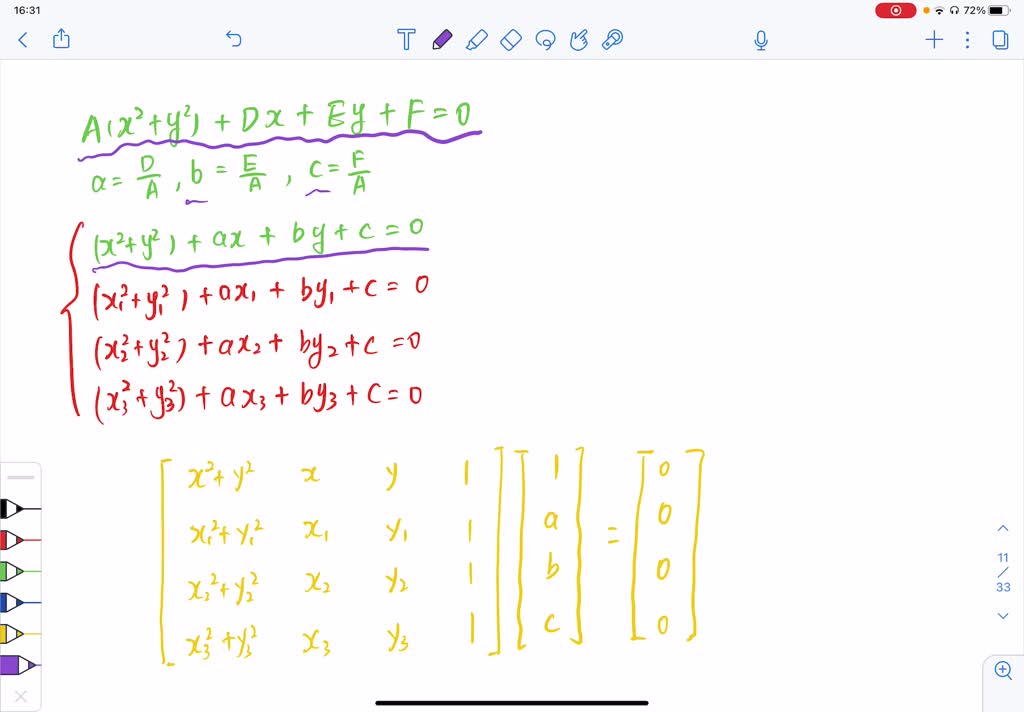 16:31
72%
A(x²+y²) + Dx + Ey + F = 0
a = D/A, b = E/A, c = F/A
(x²+y²) + ax + by + c = 0
(x₁²+y₁²) + ax₁ + by₁ + c = 0
(x₂²+y₂²) + ax₂ + by₂ + c = 0
(x₃²+y₃²) + ax₃ + by₃ + c = 0
x²+y² x y 1 1 0
x₁²+y₁² x₁ y₁ 1 a = 0
x₂²+y₂² x₂ y₂ 1 b 0
x₃²+y₃² x₃ y₃ 1 c 0
11
/
33